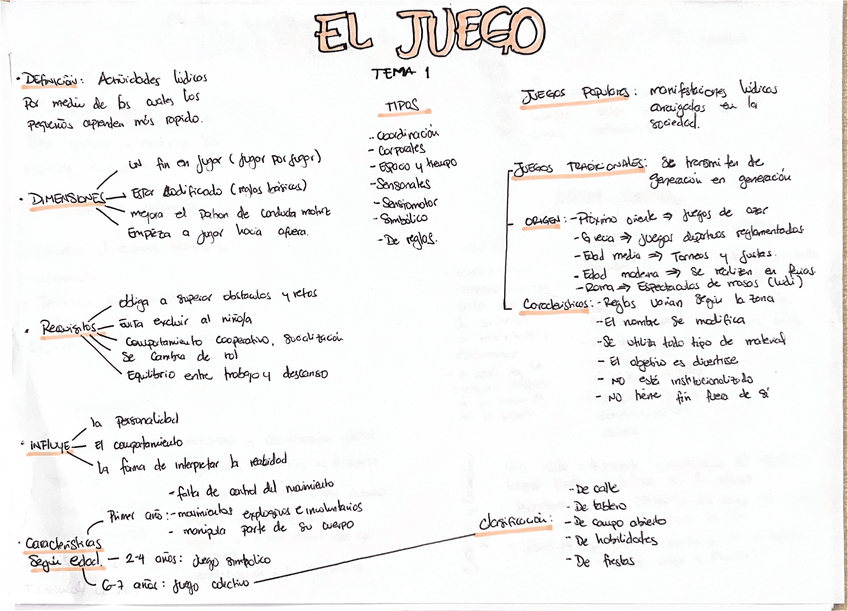 EL JUEGO
TEMA 1
• DEFINICIÓN: Actividades lúdicas
por medio de las cuales los
pequeños aprenden más rapido.
• DIMENSIONES
un fin en jugar (jugar por jugar)
Estar codificado (reglas básicas)
mejora el patron de conducta motriz
Empieza a jugar hacia afuera.
• Requisitos
obliga a superar obstaculos y retos
Evita excluir al niño/a
Comportamiento cooperativo, socialización
Se cambia de rol
Equilibrio entre trabajo y descanso
• INFLUYE
la personalidad
El comportamiento
la forma de interpretar la realidad
• Características
Según edad.
Primer año: - falta de control del movimiento
- movimientos explosivos e involuntarios
- manipula parte de su cuerpo
2-4 años: Juego simbolico
6-7 años: juego colectivo
TIPOS
- Coordinación
- Corporales
- Espacio y tiempo
- Sensoriales
- Sensiomotor
- Simbólico
- De reglas.
JUEGOS POPULARES: manifestaciones lúdicas
arraigadas en la
sociedad.
JUEGOS TRADICIONALES: Se transmiten de
generación en generación
ORIGEN: - Próximo oriente ⇒ juegos de azar
- Grecia ⇒ juegos deportivos reglamentados
- Edad media ⇒ Torneos y justas.
- Edad moderna ⇒ Se realizan en ferias
- Roma ⇒ Espectaculos de masas (ludi)
Características: - Reglas varian según la zona
- El nombre se modifica
- Se utiliza todo tipo de material
- El objetivo es divertirse
- NO está institucionalizado
- NO tiene fin fuera de sí
Clasificación:
- De calle
- De tablero
- De campo abierto
- De habilidades
- De fiestas